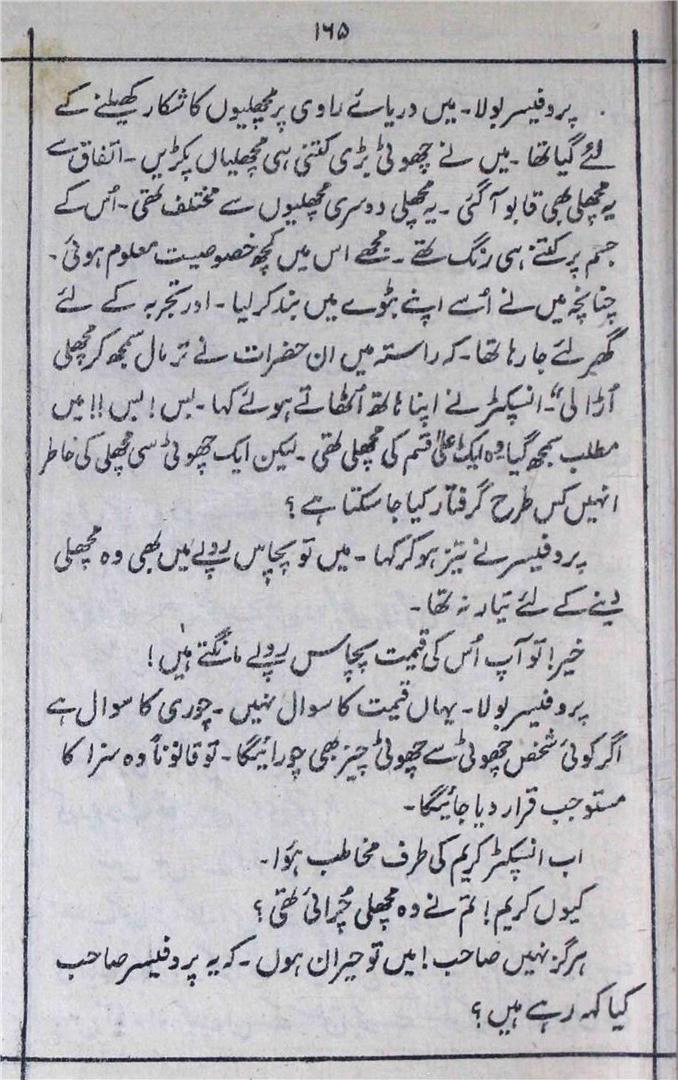 ۱۶۵
پروفیسر بولا۔ میں دریائے راوی پر مچھلیوں کا شکار کھیلنے کے
لئے گیا تھا۔ میں نے چھوٹی بڑی کتنی ہی مچھلیاں پکڑیں۔ اتفاق سے
یہ مچھلی بھی قابو آ گئی۔ یہ مچھلی دوسری مچھلیوں سے مختلف تھی۔ اُس کے
جسم پر کتنے ہی رنگ تھے۔ مجھے اس میں کچھ خصوصیت معلوم ہوئی۔
چنانچہ میں نے اُسے اپنے بٹوے میں بند کر لیا۔ اور تجربہ کے لئے
گھر لئے جا رہا تھا۔ کہ راستہ میں ان حضرات نے تر مال سمجھ کر مچھلی
اُڑا لی"۔ انسپکٹر نے اپنا ہاتھ اُٹھاتے ہوئے کہا۔ بس! بس!! میں
مطلب سمجھ گیا وہ ایک اعلیٰ قسم کی مچھلی تھی۔ لیکن ایک چھوٹی سی مچھلی کی خاطر
انہیں کس طرح گرفتار کیا جا سکتا ہے؟
پروفیسر نے تیز ہو کر کہا۔ میں تو پچاس روپے میں بھی وہ مچھلی
دینے کے لئے تیار نہ تھا۔
خیر! تو آپ اُس کی قیمت پچاس روپے مانگتے ہیں!
پروفیسر بولا۔ یہاں قیمت کا سوال نہیں۔ چوری کا سوال ہے
اگر کوئی شخص چھوٹی سے چھوٹی چیز بھی چورائیگا۔ تو قانوناً وہ سزا کا
مستوجب قرار دیا جائیگا۔
اب انسپکٹر کریم کی طرف مخاطب ہؤا۔
کیوں کریم! تم نے وہ مچھلی چُرائی تھی؟
ہرگز نہیں صاحب! میں تو حیران ہوں۔ کہ یہ پروفیسر صاحب
کیا کہہ رہے ہیں؟